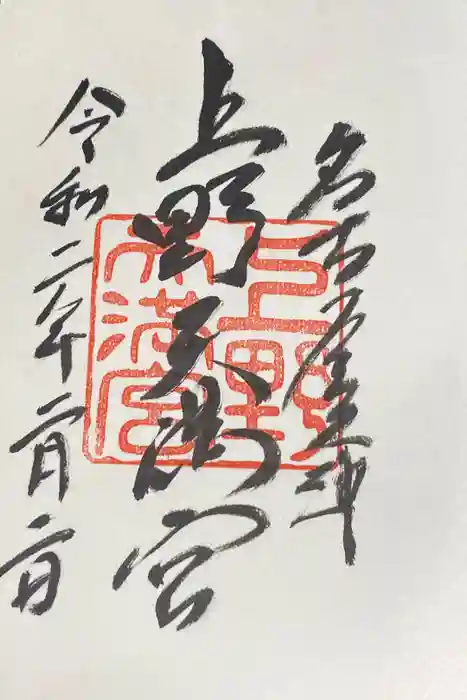 名古屋天神
上野天満宮
令和二年二月二日
上野
天満宮